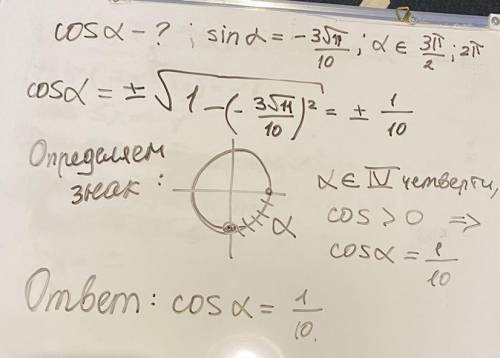 cosα - ? ; sinα = -3√11/10 ; α ∈ 3π/2 ; 2π
cosα = ± √(1 - (- 3√11/10)²) = ± 1/10
Определяем
знак :
α
α ∈ IV четверти,
cos > 0 ⇒
cosα = 1/10
Ответ : cosα = 1/10.